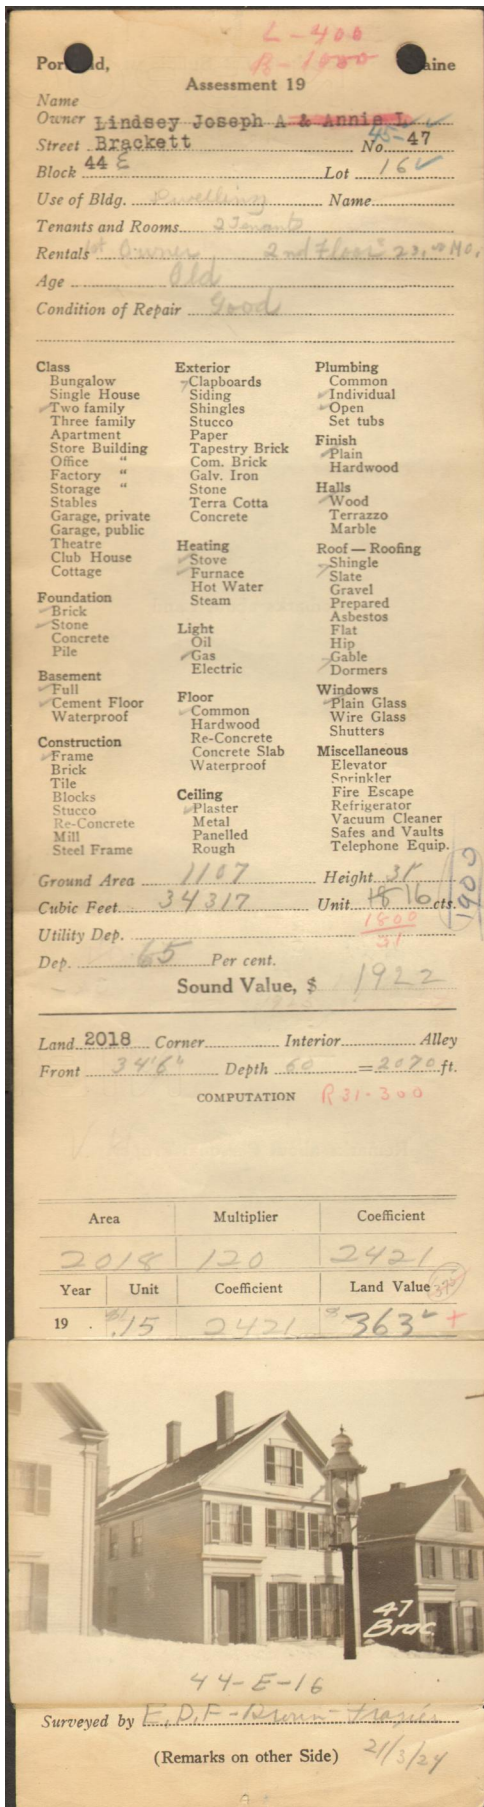 L-400
B-1000
Portland, Maine
Assessment 19
Name
Owner Lindsey Joseph A & Annie L
Street Brackett No. 45-47
Block 44 E Lot 16
Use of Bldg. Dwelling Name
Tenants and Rooms 2 Tenants
Rentals 1st Owner 2nd Floor 23.00 Mo.
Age Old
Condition of Repair Good
Class
Bungalow
Single House
Two family
Three family
Apartment
Store Building
Office "
Factory "
Storage "
Stables
Garage, private
Garage, public
Theatre
Club House
Cottage
Foundation
Brick
Stone
Concrete
Pile
Basement
Full
Cement Floor
Waterproof
Construction
Frame
Brick
Tile
Blocks
Stucco
Re-Concrete
Mill
Steel Frame
Exterior
Clapboards
Siding
Shingles
Stucco
Paper
Tapestry Brick
Com. Brick
Galv. Iron
Stone
Terra Cotta
Concrete
Heating
Stove
Furnace
Hot Water
Steam
Light
Oil
Gas
Electric
Floor
Common
Hardwood
Re-Concrete
Concrete Slab
Waterproof
Ceiling
Plaster
Metal
Panelled
Rough
Plumbing
Common
Individual
Open
Set tubs
Finish
Plain
Hardwood
Halls
Wood
Terrazzo
Marble
Roof — Roofing
Shingle
Slate
Gravel
Prepared
Asbestos
Flat
Hip
Gable
Dormers
Windows
Plain Glass
Wire Glass
Shutters
Miscellaneous
Elevator
Sprinkler
Fire Escape
Refrigerator
Vacuum Cleaner
Safes and Vaults
Telephone Equip.
Ground Area 1107 Height 31
Cubic Feet 34317 Unit 18 16 cts.
1900
Utility Dep. 1800
31
Dep. 65 Per cent.
Sound Value, $ 1922
Land 2018 Corner Interior Alley
Front 34'6" Depth 60 = 2070 ft.
COMPUTATION R31-300
Area Multiplier Coefficient
2018 120 2421
Year Unit Coefficient Land Value 375
19 . .15 2421 363 +
47
Brac
44-E-16
Surveyed by E.D.F-Brown-Frazier
(Remarks on other Side) 21/3/24